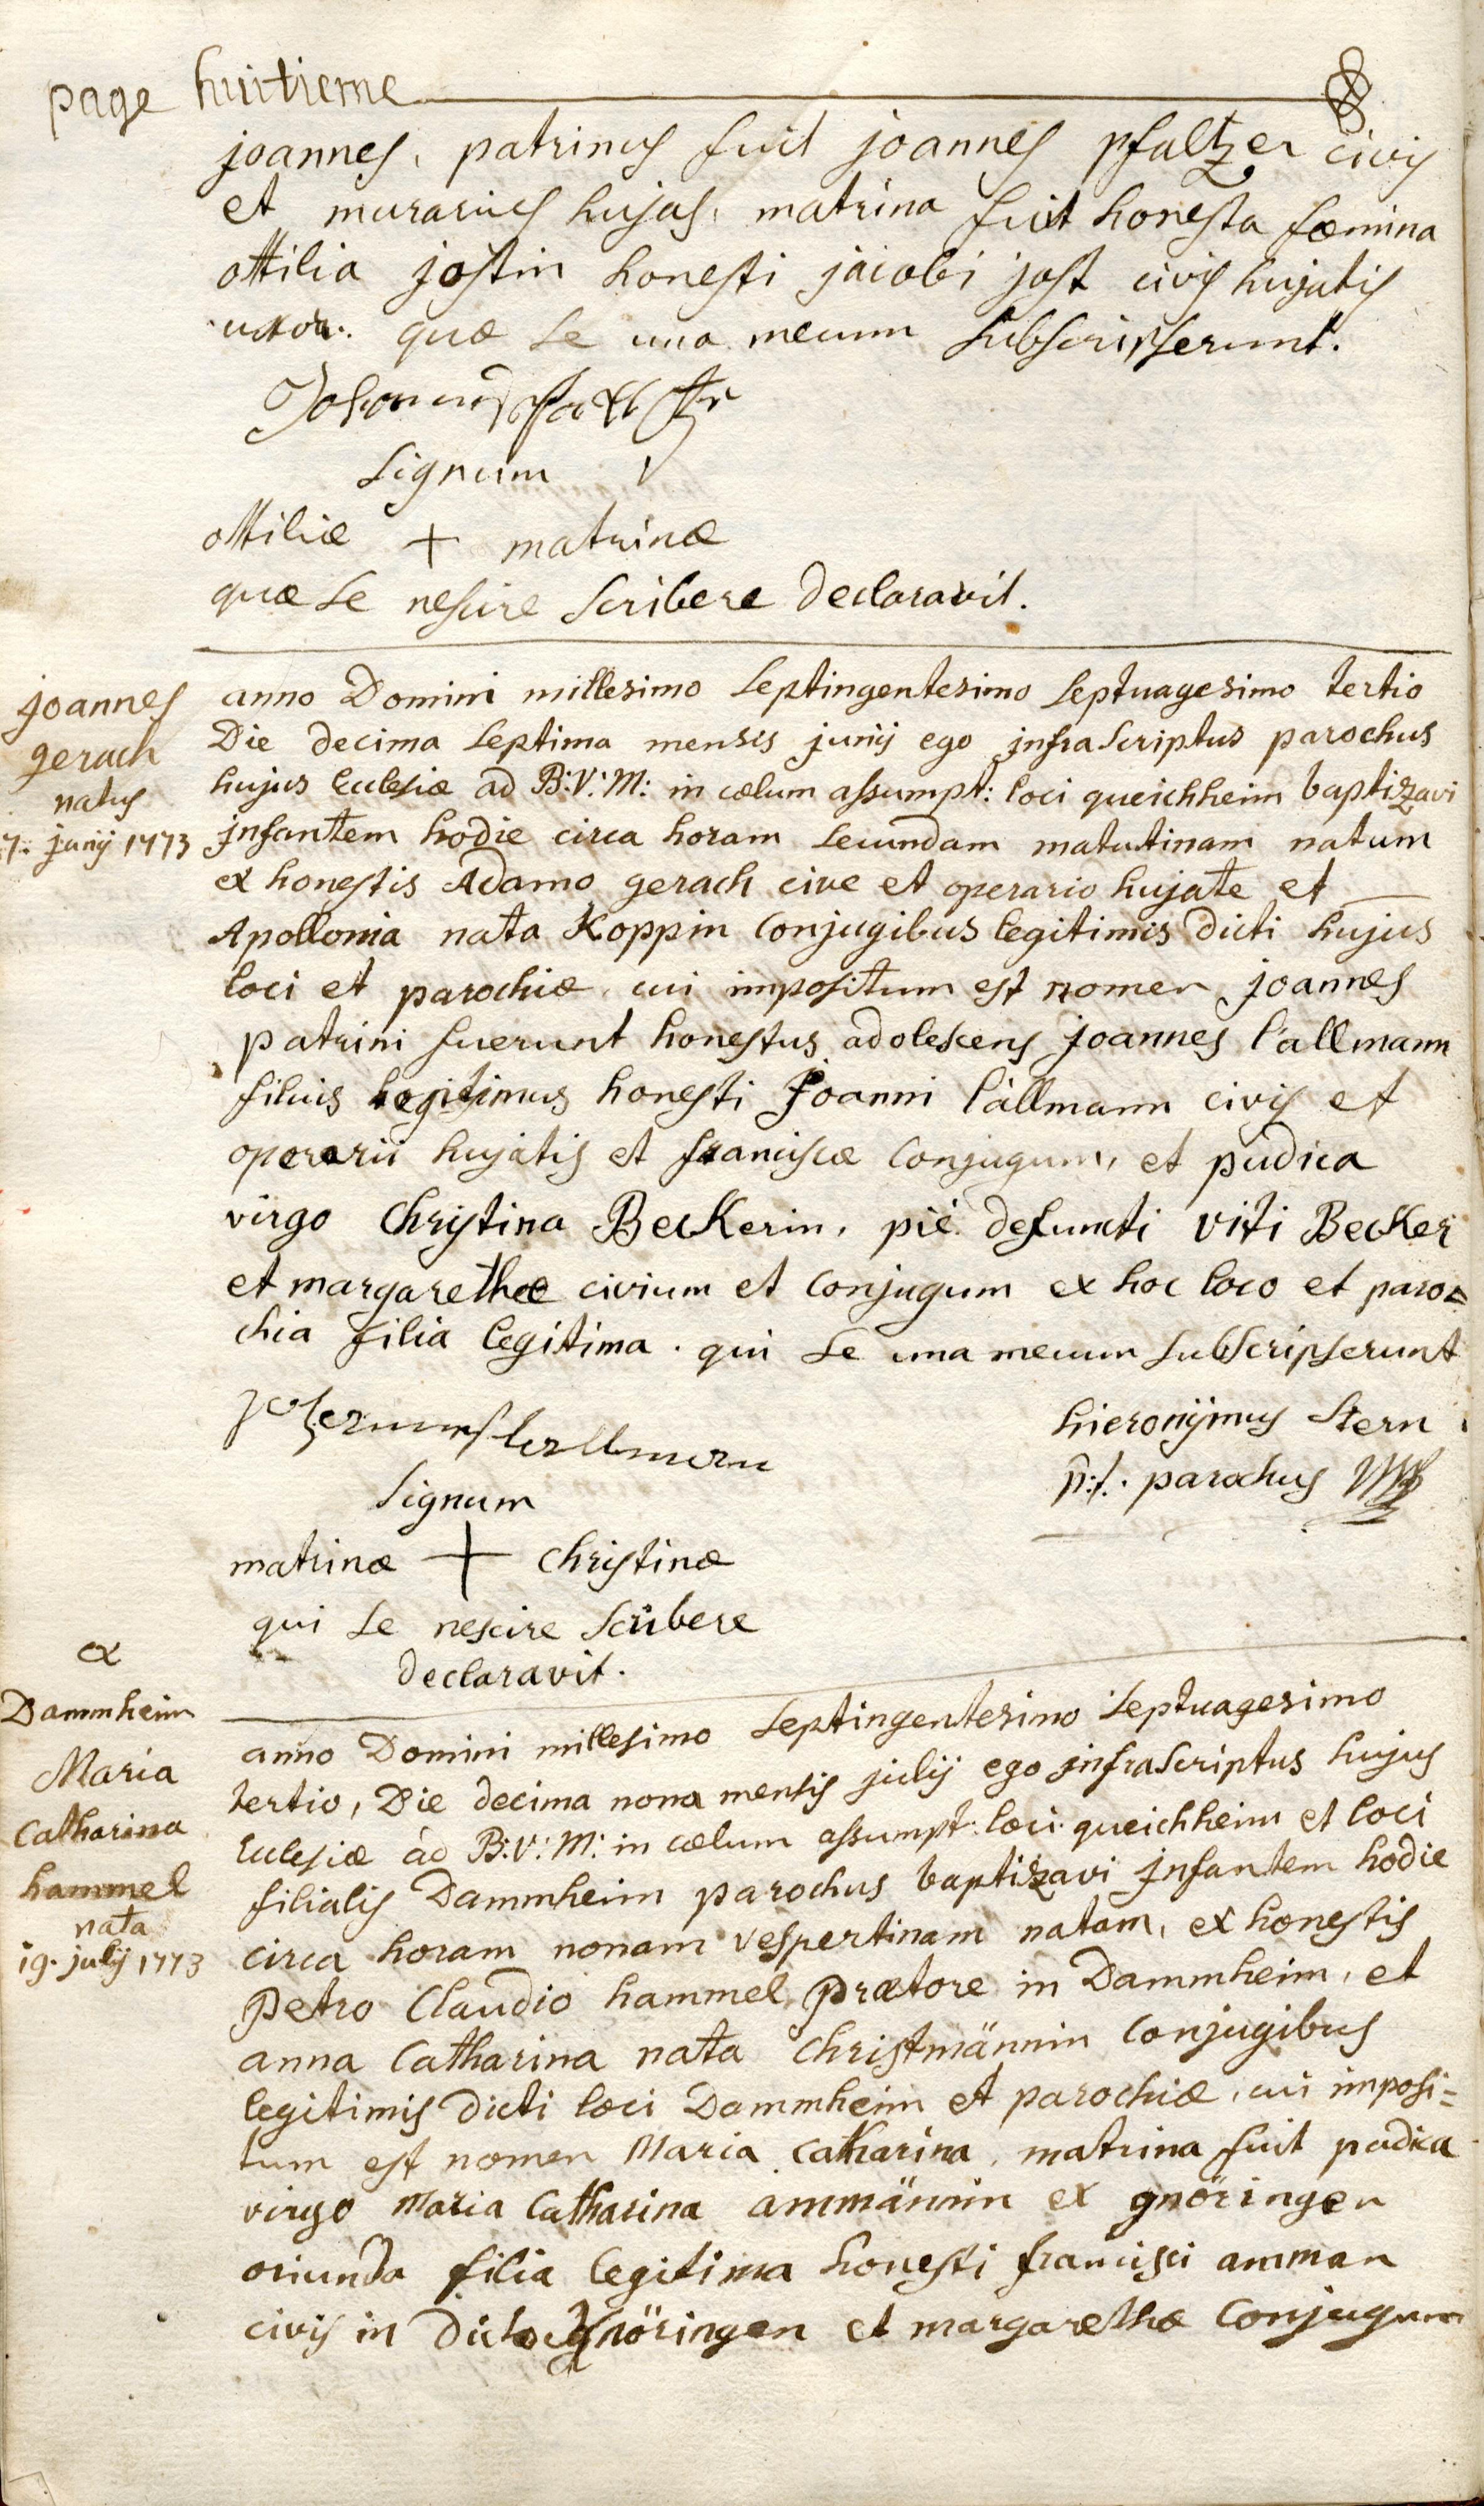 page huitieme
joannes, patrinus fuit joannes pfaltzer civis
et murarius hujas, matrina fuit honesta fœmina
ottilia jostin honesti jacobi jost civis hujatis
uxor. quæ se una mecum subscripserunt.
signum
ottiliæ + matrinæ
quæ se nescire scribere declaravit.
joannes
gerach
natus
17. junij 1773
anno Domini millesimo septingentesimo septuagesimo tertio
Die decima septima mensis junij ego jnfrascriptus parochus
hujus Ecclesiæ ad B:V:M: in cœlum assumpt: loci queichheim baptizavi
jnfantem hodie circa horam secundam matutinam natum
ex honestis Adamo gerach cive et operario hujate et
Apollonia nata Koppin conjugibus legitimis dicti hujus
loci et parochiæ cui impositum est nomen joannes
patrini fuerunt honestus adolescens joannes lällmann
filius legitimus honesti Joanni lällmann civis et
operarii hujatis et franciscæ conjugum, et pudica
virgo Christina Beckerin, pié defuncti viti Becker
et margarethæ civium et conjugum ex hoc loco et paro=
chia filia legitima. qui se una mecum subscripserunt
hieronijmus stern
p:t. parochus
signum
matrinæ + christinæ
qui se nescire scribere
declaravit.
ex
Dammheim
Maria
Catharina
hammel
nata
19. julij 1773
anno Domini millesimo septingentesimo septuagesimo
tertio, Die decima nona mensis julij ego jnfrascriptus hujus
Ecclesiæ ad B:V:M: in cœlum assumpt: loci queichheim et loci
filialis Dammheim parochus baptizavi jnfantem hodie
circa horam nonam vespertinam natam, ex honestis
Petro Claudio hammel prætore in Dammheim, et
anna Catharina nata Christmännin conjugibus
legitimis dicti loci Dammheim et parochiæ, cui imposi=
tum est nomen Maria Catharina, matrina fuit pudica
virgo Maria Catharina ammännin ex gnöringen
oriunda filia legitima honesti francisci amman
civis in dicto gnöringen et margarethæ conjugum